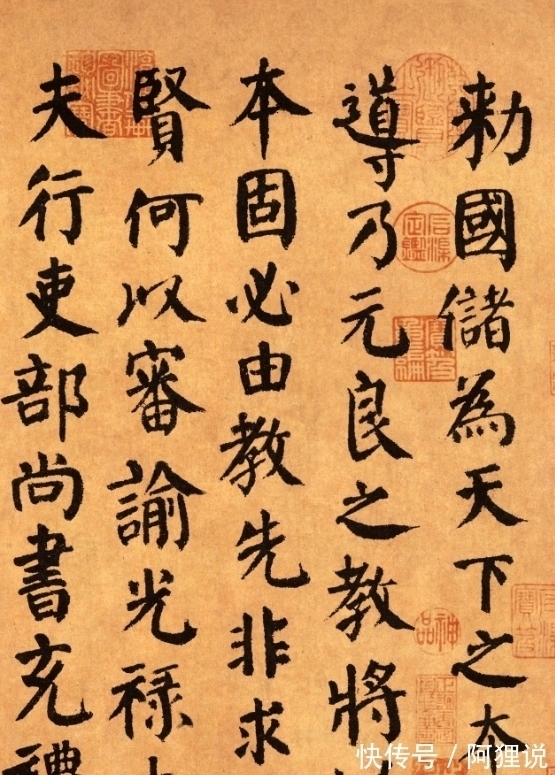 勅國儲為天下之本
導乃元良之教將
本固必由教先非求
賢何以審諭光祿
夫行吏部尚書充禮
神品
快传号 / 阿狸说